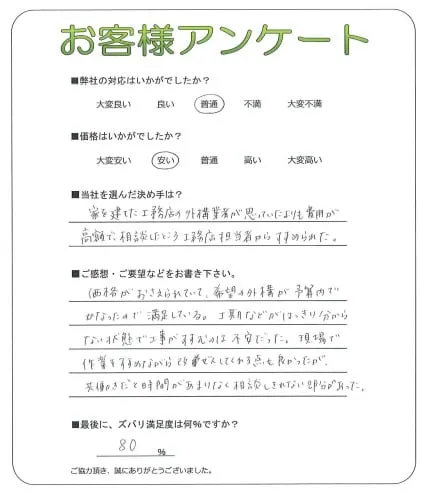 お客様アンケート
■弊社の対応はいかがでしたか?
大変良い 良い 普通 不満 大変不満
■価格はいかがでしたか?
大変安い 安い 普通 高い 大変高い
■当社を選んだ決め手は?
家を建てた工務店の外構業者が思っていたよりも費用が
高額で、相談したところ工務店担当者からすすめられた。
■ご感想・ご要望などをお書き下さい。
価格がおさえられていて、希望の外構が予算内で
できたので満足している。工期などがはっきり分から
ない状態で工事がすすむのは不安だった。現場で
作業をすすめながら改善してくれる点も良かったが、
共働きだと時間があまりなく相談しきれない部分があった。
■最後に、ズバリ満足度は何%ですか?
80 %
ご協力頂き、誠にありがとうございました。